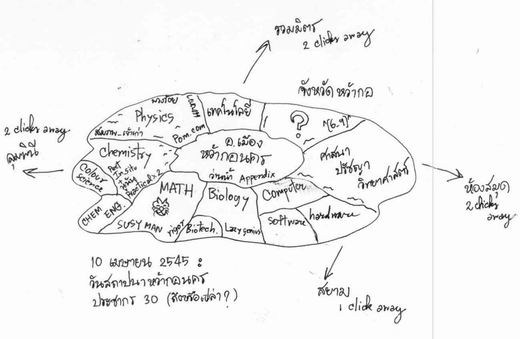 รวมมิตร
2 clicks away
จังหวัด หว้ากอ
ห้วงร้อย
Physics
Pom.com
เทคโนโลยี
?
2 clicks away
ลุมพินี
Chemistry
อ.เมือง
หว้ากอนคร
Appendix
ศาสนา
ปรัชญา
วิทยาศาสตร์
Colour
Science
In situ
Practical x 2
MATH
Biology
Computer
software
hardware
ห้องสมุด
2 clicks
away
CHEM
ENG.
SUSY MAN
Biotech.
Lazy genius
10 เมษายน 2545 :
วันสถาปนาหว้ากอนคร
ประชากร 30 (สิงหรือเปล่า?)
สยาม
1 click away